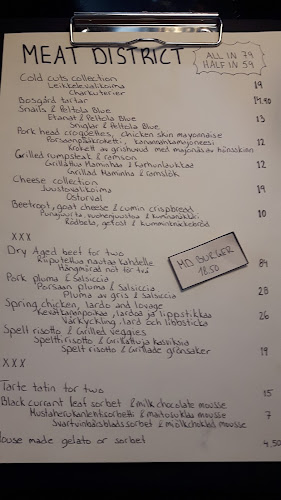 MEAT DISTRICT
ALL IN 79
HALF IN 59
Cold cuts collection 19
Leikkelevalikoima
Charkuterier
Bosgård tartar 14.90
Snails & Peltola Blue 13
Etanat & Peltola Blue
Sniglar & Peltola Blue
Pork head croquettes, chicken skin mayonnaise 12
Porsaanpääkroketti, kanannahkamajoneesi
Krokett av grishuvud med majonnäs av hönsskinn
Grilled rumpsteak & ramson 12
Grillattua Maminhaa & Karhunlaukkaa
Grillad Maminha & ramslök
Cheese collection 19
Juustovalikoima
Osturval
Beetroot, goat cheese & cumin crispbread 10
Punajuurta, vuohenjuustoa & kuminanäkki
Rödbeta, getost & kumminknäckebröd
XXX
MD BURGER
18.50
Dry Aged beef for two 84
Riiputettua nautaa kahdelle
Hängmörad nöt för två
Pork pluma & Salsiccia 28
Porsaan pluma & Salsiccia
Pluma av gris & Salsiccia
Spring chicken, lardo and lovage 26
Kevätkananpoikaa, lardoa ja lipstikkaa
Vårkyckling, lard och libbsticka
Spelt risotto & Grilled veggies 19
Spelttirisotto & Grillattuja kasviksia
Spelt risotto & Grillade grönsaker
XXX
Tarte tatin for two 15
Black currant leaf sorbet & milk chocolate mousse 7
Mustaherukanlehtisorbetti & maitosuklaa mousse
Svartvinbärsbladssorbet & mjölkchoklad mousse
House made gelato or sorbet 4.50